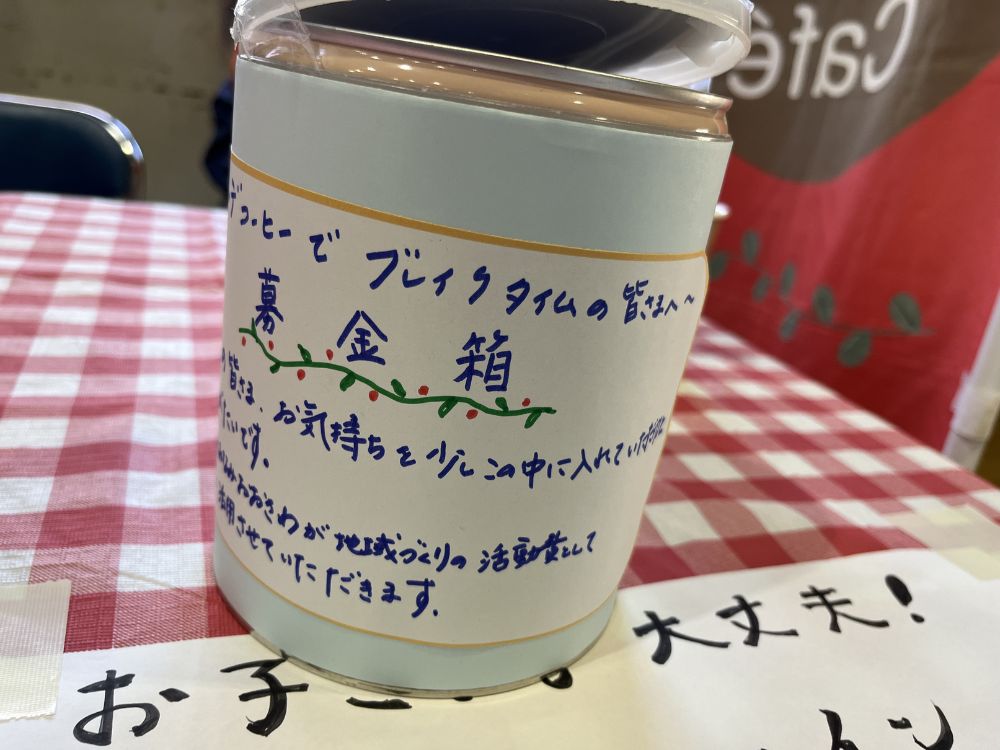 Café
デコーヒーで ブレイクタイムの皆さまへ～
募金箱
皆さま、お気持ちを少しこの中に入れていただけ
たいです。
おおさわが地域づくりの活動費として
活用させていただきます。
大丈夫！
お子